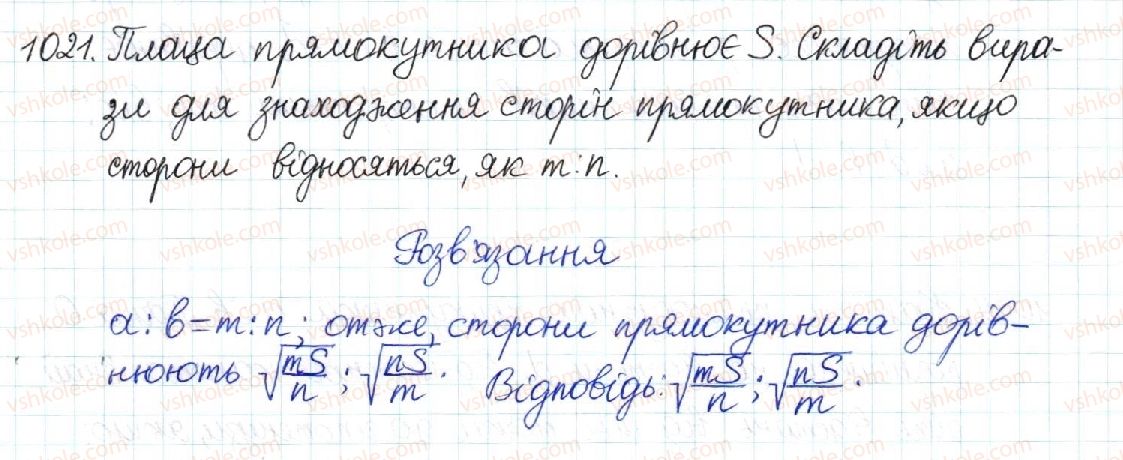 1021. Площа прямокутника дорівнює S. Складіть вира-
зи для знаходження сторін прямокутника, якщо
сторони відносяться, як m:n.
Розв'язання
a:b=m:n; отже, сторони прямокутника дорів-
нюють √(mS/n); √(nS/m). Відповідь: √(mS/n); √(nS/m).